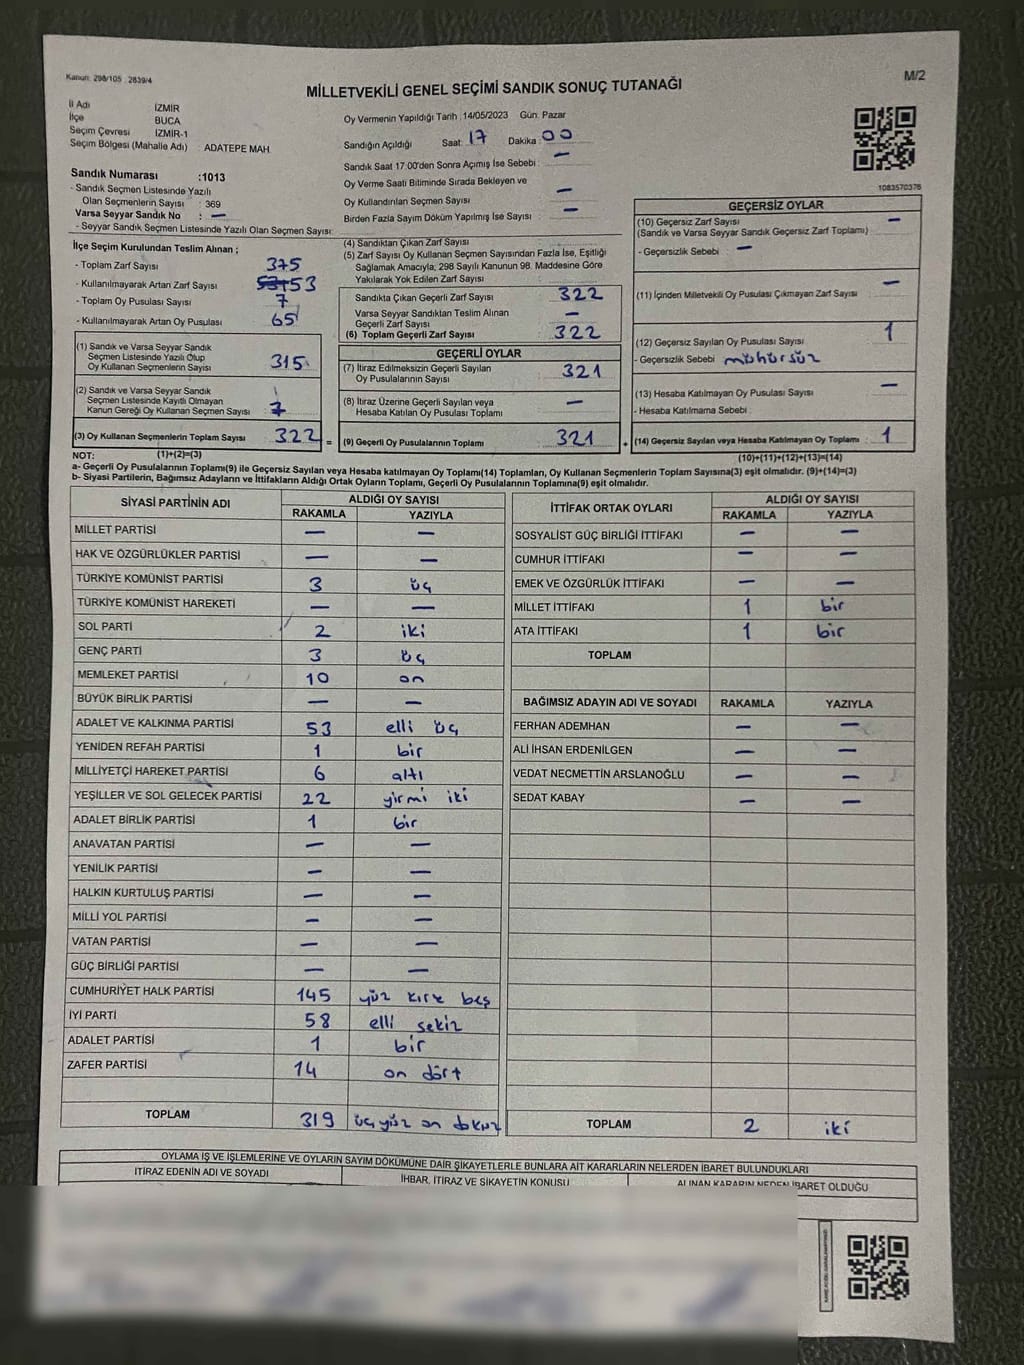 Kanun: 298/105 2839/4
MİLLETVEKİLİ GENEL SEÇİMİ SANDIK SONUÇ TUTANAĞI
M/2
İl Adı İZMİR
İlçe BUCA
Seçim Çevresi İZMİR-1
Seçim Bölgesi (Mahalle Adı) ADATEPE MAH.
Oy Vermenin Yapıldığı Tarih : 14/05/2023 Gün: Pazar
Sandığın Açıldığı Saat: 17 Dakika: 00
Sandık Saat 17:00'den Sonra Açımış İse Sebebi : —
Oy Verme Saati Bitiminde Sırada Bekleyen ve
Oy Kullandırılan Seçmen Sayısı —
Birden Fazla Sayım Döküm Yapılmış İse Sayısı —
1083570376
Sandık Numarası :1013
- Sandık Seçmen Listesinde Yazılı
Olan Seçmenlerin Sayısı : 369
Varsa Seyyar Sandık No : —
- Seyyar Sandık Seçmen Listesinde Yazılı Olan Seçmen Sayısı:
İlçe Seçim Kurulundan Teslim Alınan ;
- Toplam Zarf Sayısı 375
- Kullanılmayarak Artan Zarf Sayısı 53
- Toplam Oy Pusulası Sayısı
- Kullanılmayarak Artan Oy Pusulası 65
(1) Sandık ve Varsa Seyyar Sandık
Seçmen Listesinde Yazılı Olup
Oy Kullanan Seçmenlerin Sayısı 315
(2) Sandık ve Varsa Seyyar Sandık
Seçmen Listesinde Kayıtlı Olmayan
Kanun Gereği Oy Kullanan Seçmen Sayısı 7
(3) Oy Kullanan Seçmenlerin Toplam Sayısı 322 =
(4) Sandıktan Çıkan Zarf Sayısı
(5) Zarf Sayısı Oy Kullanan Seçmen Sayısından Fazla İse, Eşitliği
Sağlamak Amacıyla, 298 Sayılı Kanunun 98. Maddesine Göre
Yakılarak Yok Edilen Zarf Sayısı
Sandıkta Çıkan Geçerli Zarf Sayısı 322
Varsa Seyyar Sandıktan Teslim Alınan
Geçerli Zarf Sayısı —
(6) Toplam Geçerli Zarf Sayısı 322
GEÇERLİ OYLAR
(7) İtiraz Edilmeksizin Geçerli Sayılan
Oy Pusulalarının Sayısı 321
(8) İtiraz Üzerine Geçerli Sayılan veya
Hesaba Katılan Oy Pusulası Toplamı —
(9) Geçerli Oy Pusulalarının Toplamı 321 +
GEÇERSİZ OYLAR
(10) Geçersiz Zarf Sayısı —
(Sandık ve Varsa Seyyar Sandık Geçersiz Zarf Toplamı)
- Geçersizlik Sebebi —
(11) İçinden Milletvekili Oy Pusulası Çıkmayan Zarf Sayısı —
(12) Geçersiz Sayılan Oy Pusulası Sayısı 1
- Geçersizlik Sebebi mühürsüz
(13) Hesaba Katılmayan Oy Pusulası Sayısı —
- Hesaba Katılmama Sebebi :
(14) Geçersiz Sayılan veya Hesaba Katılmayan Oy Toplamı 1
NOT: (1)+(2)=(3)
(10)+(11)+(12)+(13)=(14)
a- Geçerli Oy Pusulalarının Toplamı(9) ile Geçersiz Sayılan veya Hesaba katılmayan Oy Toplamı(14) Toplamları, Oy Kullanan Seçmenlerin Toplam Sayısına(3) eşit olmalıdır. (9)+(14)=(3)
b- Siyasi Partilerin, Bağımsız Adayların ve İttifakların Aldığı Ortak Oyların Toplamı, Geçerli Oy Pusulalarının Toplamına(9) eşit olmalıdır.
SİYASİ PARTİNİN ADI ALDIĞI OY SAYISI
RAKAMLA YAZIYLA
MİLLET PARTİSİ — —
HAK VE ÖZGÜRLÜKLER PARTİSİ — —
TÜRKİYE KOMÜNİST PARTİSİ 3 üç
TÜRKİYE KOMÜNİST HAREKETİ — —
SOL PARTİ 2 iki
GENÇ PARTİ 3 üç
MEMLEKET PARTİSİ 10 on
BÜYÜK BİRLİK PARTİSİ — —
ADALET VE KALKINMA PARTİSİ 53 elli üç
YENİDEN REFAH PARTİSİ 1 bir
MİLLİYETÇİ HAREKET PARTİSİ 6 altı
YEŞİLLER VE SOL GELECEK PARTİSİ 22 yirmi iki
ADALET BİRLİK PARTİSİ 1 bir
ANAVATAN PARTİSİ — —
YENİLİK PARTİSİ — —
HALKIN KURTULUŞ PARTİSİ — —
MİLLİ YOL PARTİSİ — —
VATAN PARTİSİ — —
GÜÇ BİRLİĞİ PARTİSİ — —
CUMHURİYET HALK PARTİSİ 145 yüz kırk beş
İYİ PARTİ 58 elli sekiz
ADALET PARTİSİ 1 bir
ZAFER PARTİSİ 14 on dört
TOPLAM 319 üç yüz on dokuz
İTTİFAK ORTAK OYLARI ALDIĞI OY SAYISI
RAKAMLA YAZIYLA
SOSYALİST GÜÇ BİRLİĞİ İTTİFAKI — —
CUMHUR İTTİFAKI — —
EMEK VE ÖZGÜRLÜK İTTİFAKI — —
MİLLET İTTİFAKI 1 bir
ATA İTTİFAKI 1 bir
TOPLAM
BAĞIMSIZ ADAYIN ADI VE SOYADI RAKAMLA YAZIYLA
FERHAN ADEMHAN — —
ALİ İHSAN ERDENİLGEN — —
VEDAT NECMETTİN ARSLANOĞLU — —
SEDAT KABAY — —
TOPLAM 2 iki
OYLAMA İŞ VE İŞLEMLERİNE VE OYLARIN SAYIM DÖKÜMÜNE DAİR ŞİKAYETLERLE BUNLARA AİT KARARLARIN NELERDEN İBARET BULUNDUKLARI
İTİRAZ EDENİN ADI VE SOYADI İHBAR, İTİRAZ VE ŞİKAYETİN KONUSU ALINAN KARARIN NEDEN İBARET OLDUĞU